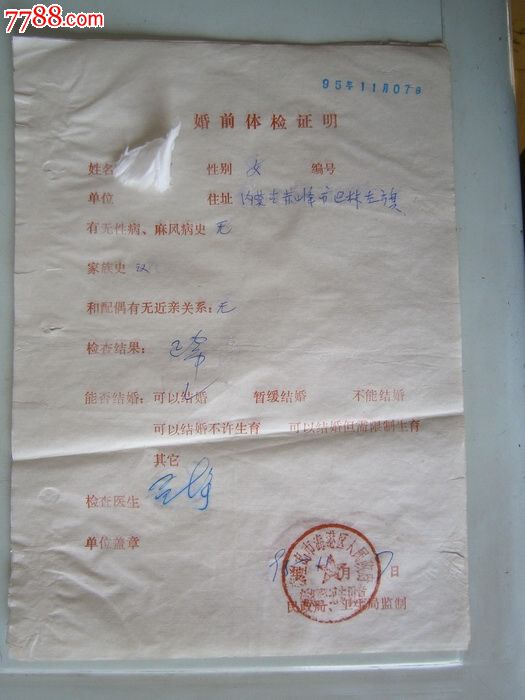 7788.com
95年11月07日
婚前体检证明
姓名 性别 女 编号
单位 住址 内蒙古赤峰市巴林左旗
有无性病、麻风病史 无
家族史 汉
和配偶有无近亲关系:无
检查结果: 正常
能否结婚:可以结婚 暂缓结婚 不能结婚
可以结婚不许生育 可以结婚但需限制生育
其它
检查医生
单位盖章
日
民政局、卫生局监制